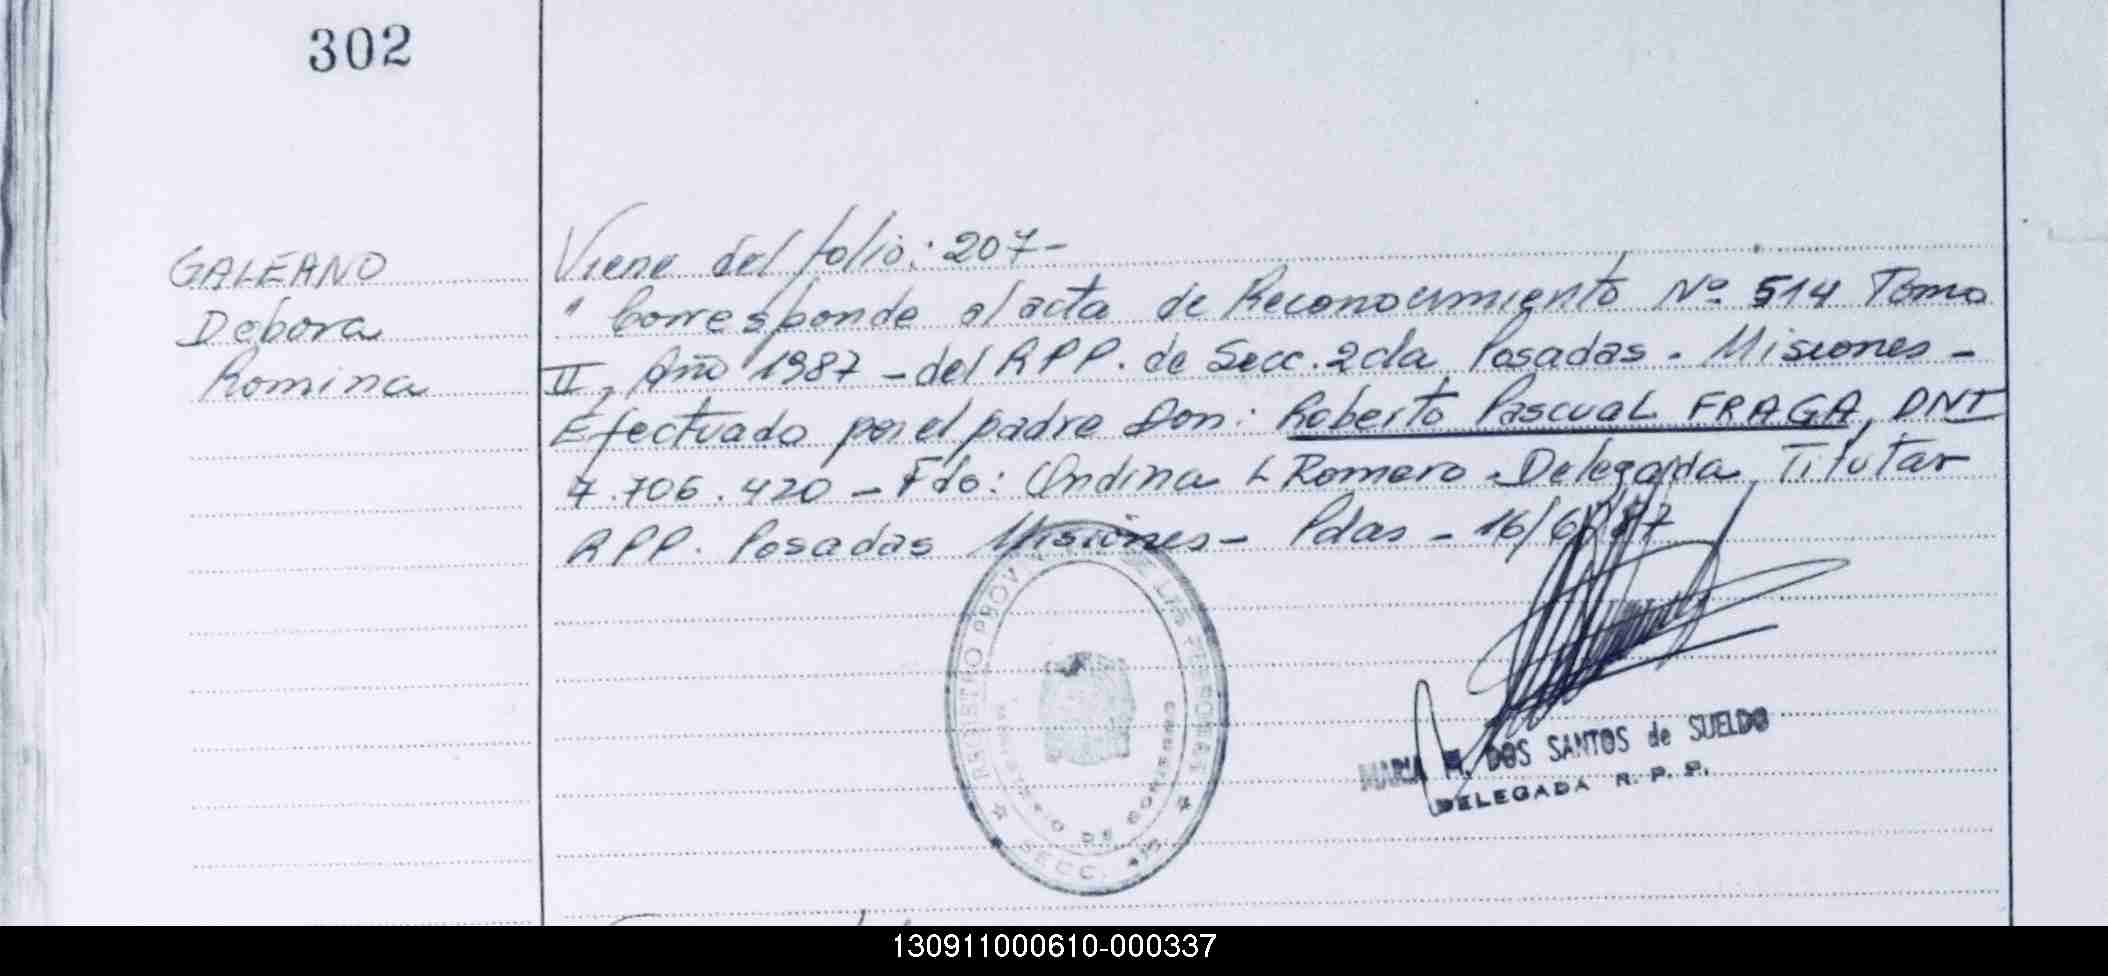 302
GALEANO
Debora
Romina
Viene del folio: 207-
" Corresponde al acta de Reconocimiento Nº 514 Tomo
II, Año 1987 - del RPP. de Secc. 2da Posadas - Misiones -
Efectuado por el padre Don: Roberto Pascual FRAGA, DNI
7.706.420 - Fdo: Ondina L Romero - Delegada Titular
RPP. Posadas Misiones - Pdas - 16/6/87
REGISTRO PROV. DE LAS PERSONAS
MINISTERIO DE GOBIERNO
SECC.
MARIA DOS SANTOS de SUELDO
DELEGADA R. P. P.
130911000610-000337